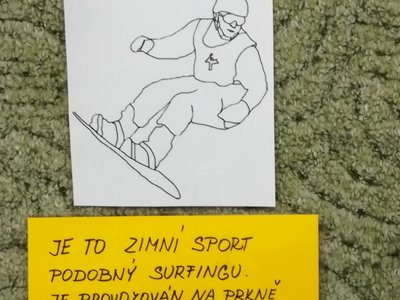 JE TO ZIMNÍ SPORT
PODOBNÝ SURFINGU.
JE PROVOZOVÁN NA PRKNĚ